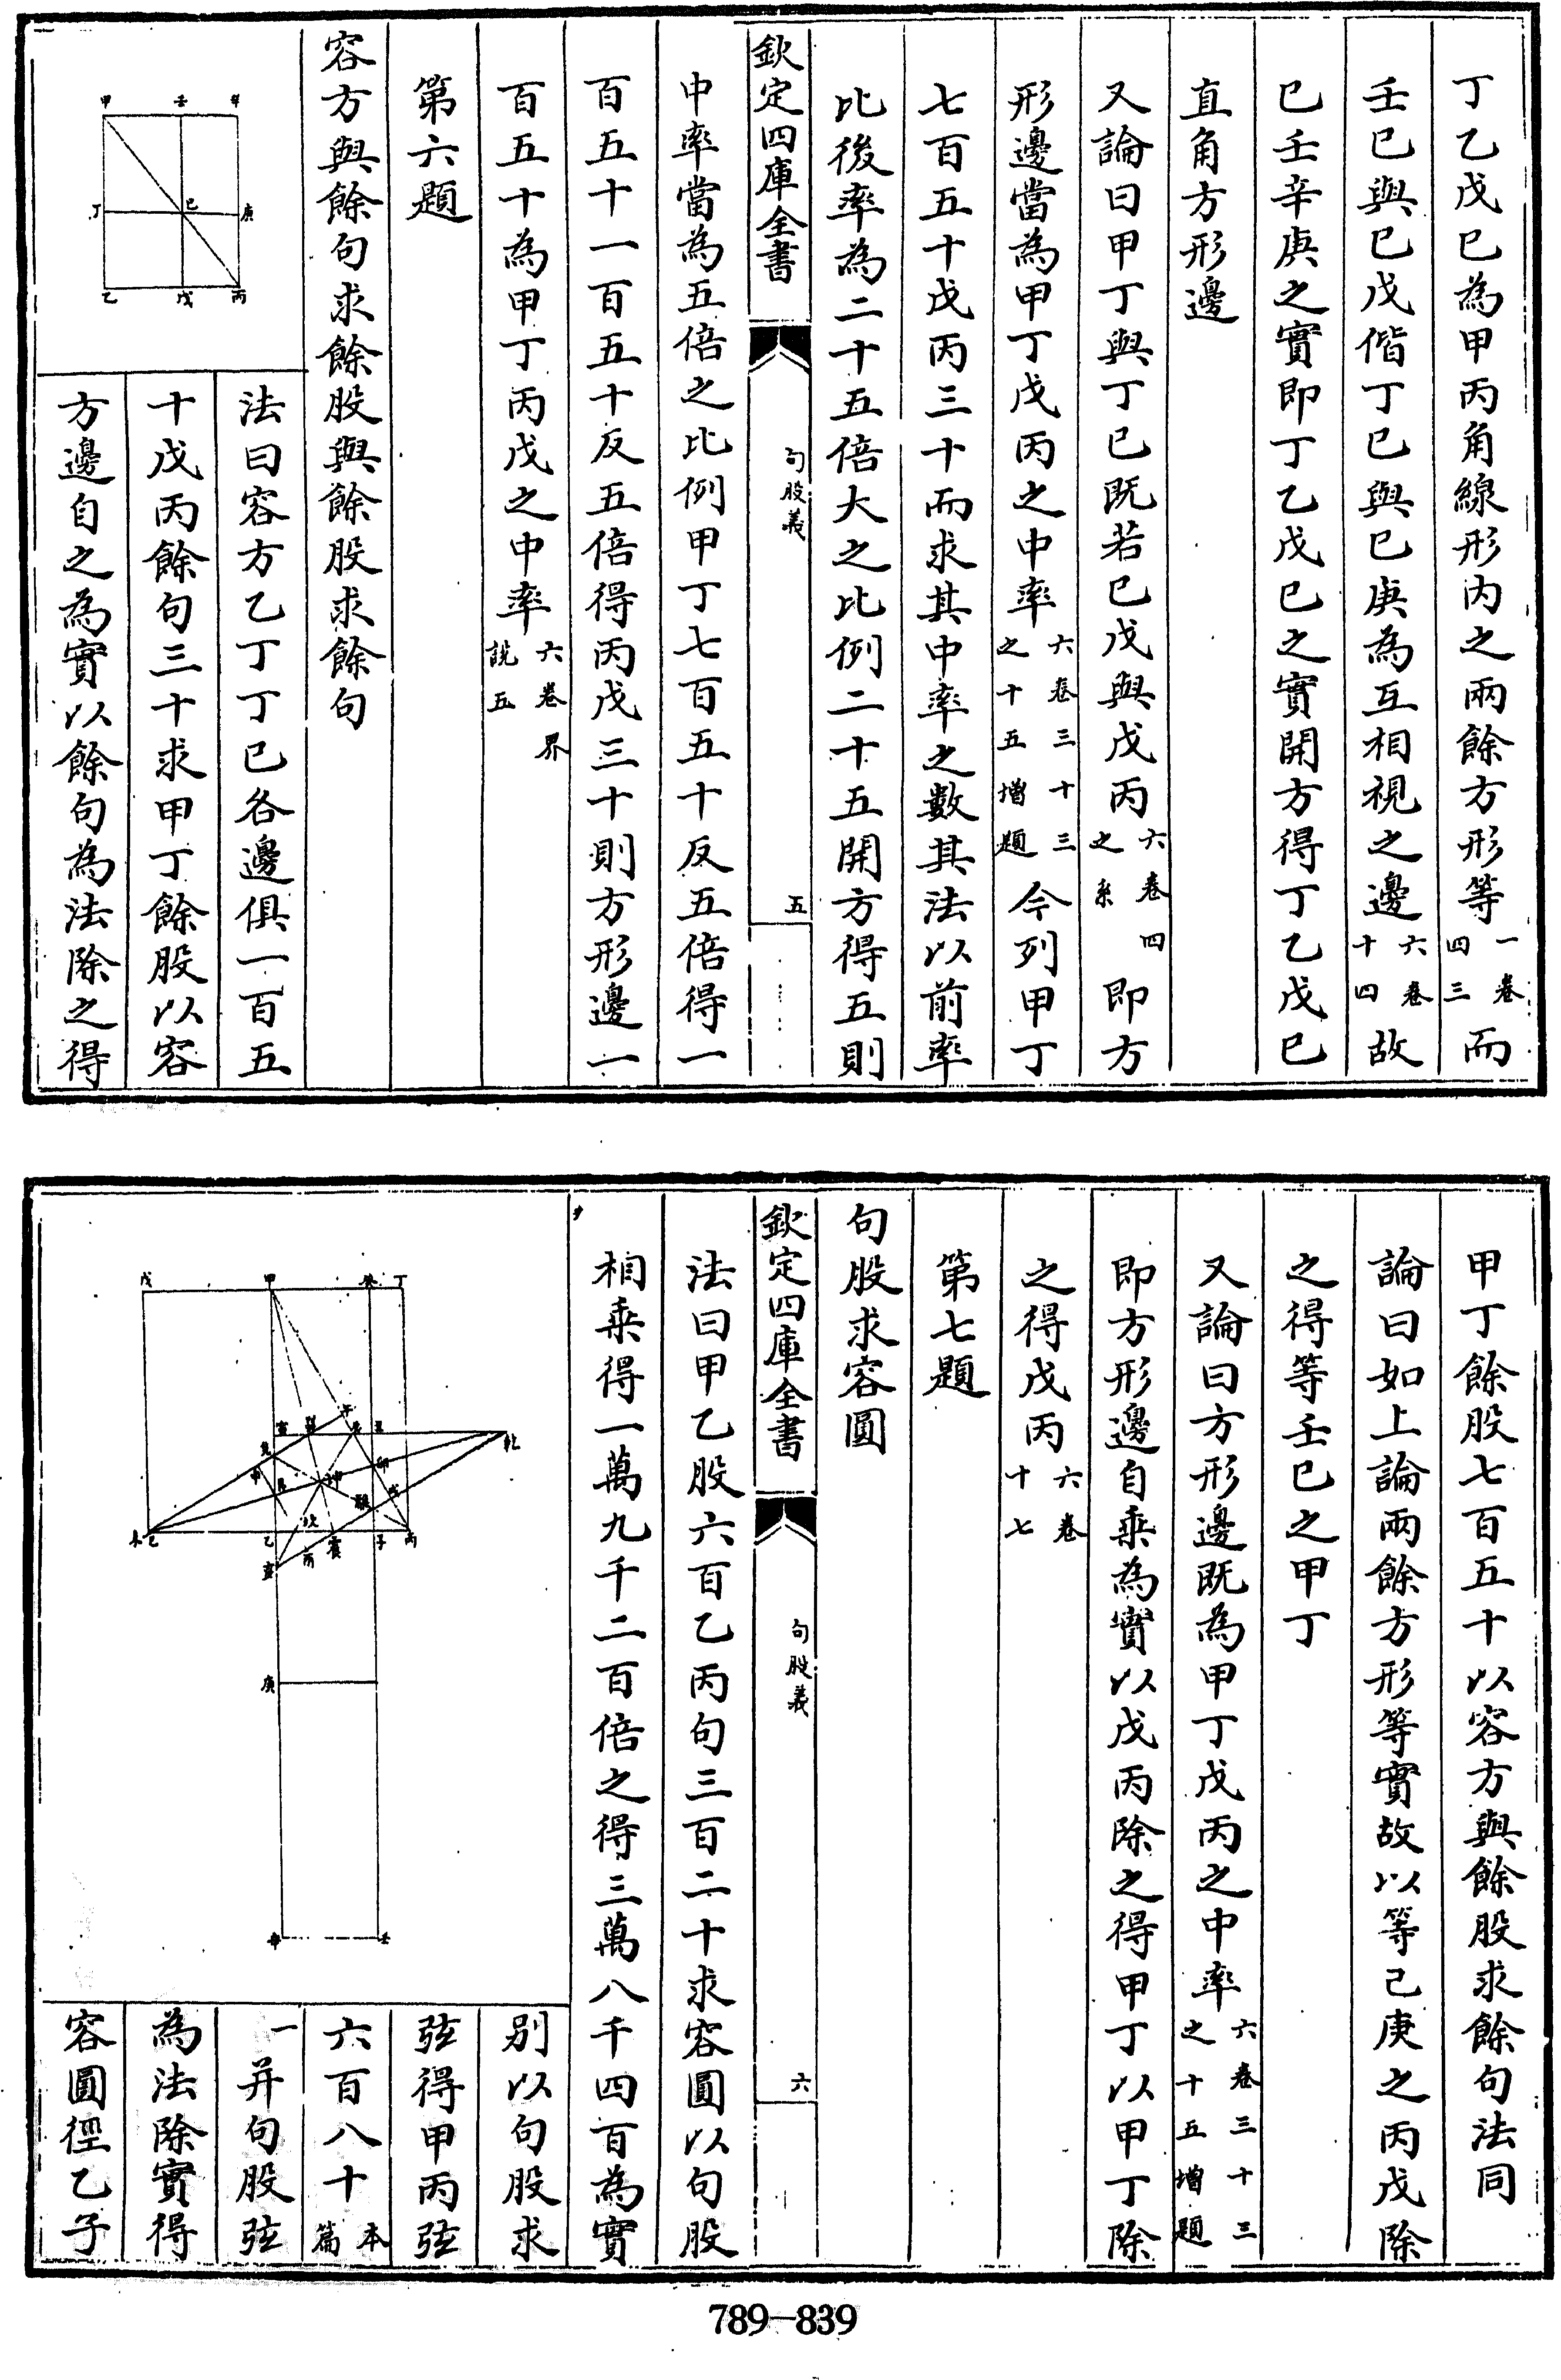 丁乙戊己為甲丙角線形内之兩餘方形等一卷四三而
壬己與己戊偕丁己與己庚為互相視之邊六卷十四故
己壬辛庚之實即丁乙戊己之實開方得丁乙戊己
直角方形邊
又論曰甲丁與丁己既若己戊與戊丙六卷四之系即方
形邊當為甲丁戊丙之中率六卷三十三之十五增題今列甲丁
七百五十戊丙三十而求其中率之數其法以前率
比後率為二十五倍大之比例二十五開方得五則
欽定四庫全書
句股義
五
中率當為五倍之比例甲丁七百五十反五倍得一
百五十一百五十反五倍得丙戊三十則方形邊一
百五十為甲丁丙戊之中率六卷界說五
第六題
容方與餘句求餘股與餘股求餘句
甲 壬 辛
丁 己 庚
乙 戊 丙
法曰容方乙丁丁己各邊俱一百五
十戊丙餘句三十求甲丁餘股以容
方邊自之為實以餘句為法除之得
甲丁餘股七百五十以容方與餘股求餘句法同
論曰如上論兩餘方形等實故以等己庚之丙戊除
之得等壬己之甲丁
又論曰方形邊既為甲丁戊丙之中率六卷三十三之十五增題
即方形邊自乘為實以戊丙除之得甲丁以甲丁除
之得戊丙六卷十七
第七題
句股求容圓
欽定四庫全書
句股義
六
法曰甲乙股六百乙丙句三百二十求容圓以句股
相乘得一萬九千二百倍之得三萬八千四百為實
戊 甲 癸 丁
乾
己 乙 子 丙
庚
辛 壬
別以句股求
弦得甲丙弦
六百八十本篇
一并句股弦
為法除實得
容圓徑乙子
789-839